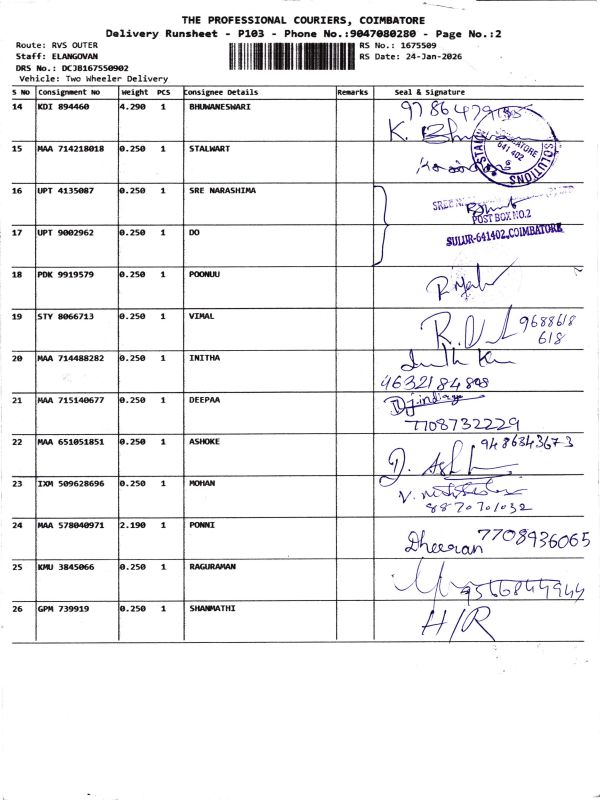 THE PROFESSIONAL COURIERS, COIMBATORE
Delivery Runsheet - P103 - Phone No.:9047080280 - Page No.:2
Route: RVS OUTER RS No.: 1675509
Staff: ELANGOVAN RS Date: 24-Jan-2026
DRS No.: DCJB167550902
Vehicle: Two Wheeler Delivery
S No Consignment No Weight PCS Consignee Details Remarks Seal & Signature
14 KDI 894460 4.290 1 BHUWANESWARI
K.
COIMBATORE 641 402
SOLUTIONS
15 MAA 714218018 0.250 1 STALWART
16 UPT 4135087 0.250 1 SRE NARASHIMA
POST BOX NO.2
17 UPT 9002962 0.250 1 DO
SULUR-641402,COIMBATORE
18 PDK 9919579 0.250 1 POONUU
19 STY 8066713 0.250 1 VIMAL
9688618
618
20 MAA 714488282 0.250 1 INITHA
21 MAA 715140677 0.250 1 DEEPAA
7708732229
22 MAA 651051851 0.250 1 ASHOKE
D. Ash
23 IXM 509628696 0.250 1 MOHAN
8870701032
24 MAA 578040971 2.190 1 PONNI
Dheeran 7708936065
25 KMU 3845066 0.250 1 RAGURAMAN
26 GPM 739919 0.250 1 SHANMATHI
H/R